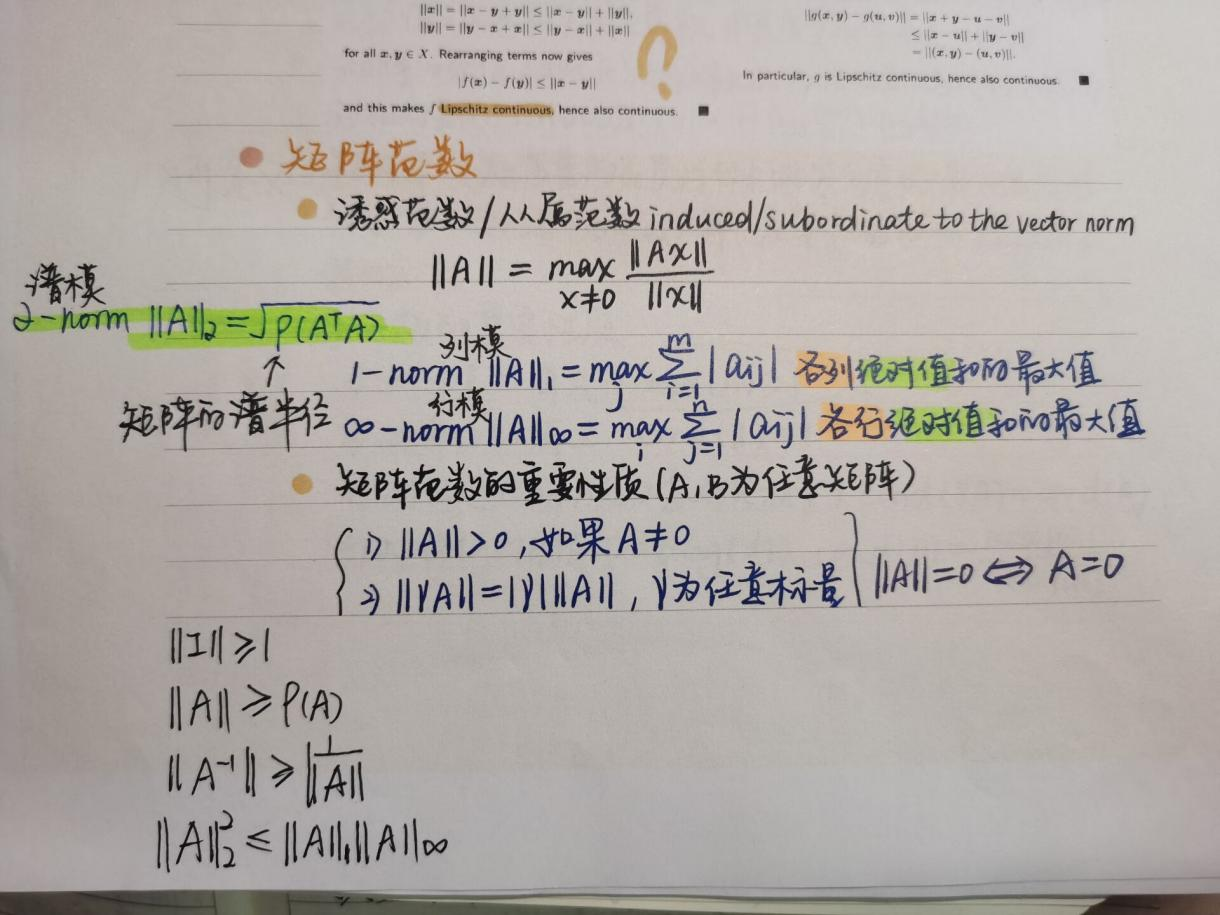 ||x|| = ||x − y + y|| ≤ ||x − y|| + ||y||,
||y|| = ||y − x + x|| ≤ ||y − x|| + ||x||
for all x, y ∈ X. Rearranging terms now gives
|f(x) − f(y)| ≤ ||x − y||
and this makes f Lipschitz continuous, hence also continuous. ■
?
||g(x, y) − g(u, v)|| = ||x + y − u − v||
≤ ||x − u|| + ||y − v||
= ||(x, y) − (u, v)||.
In particular, g is Lipschitz continuous, hence also continuous. ■
矩阵范数
诱惑范数/从属范数 induced/subordinate to the vector norm
||A|| = max x≠0 ||Ax|| / ||x||
谱模
2-norm ||A||₂ = √ρ(AᵀA)
↑
矩阵的谱半径
列模
1-norm ||A||₁ = max j ∑ i=1 m |aij| 各列绝对值和的最大值
行模
∞-norm ||A||∞ = max i ∑ j=1 n |aij| 各行绝对值和的最大值
矩阵范数的重要性质(A,B为任意矩阵)
1) ||A|| > 0, 如果 A ≠ 0
2) ||γA|| = |γ| ||A||, γ为任意标量
||A|| = 0 ⟺ A = 0
||I|| ≥ 1
||A|| ≥ ρ(A)
||A⁻¹|| ≥ 1 / ||A||
||A||₂² ≤ ||A||₁||A||∞